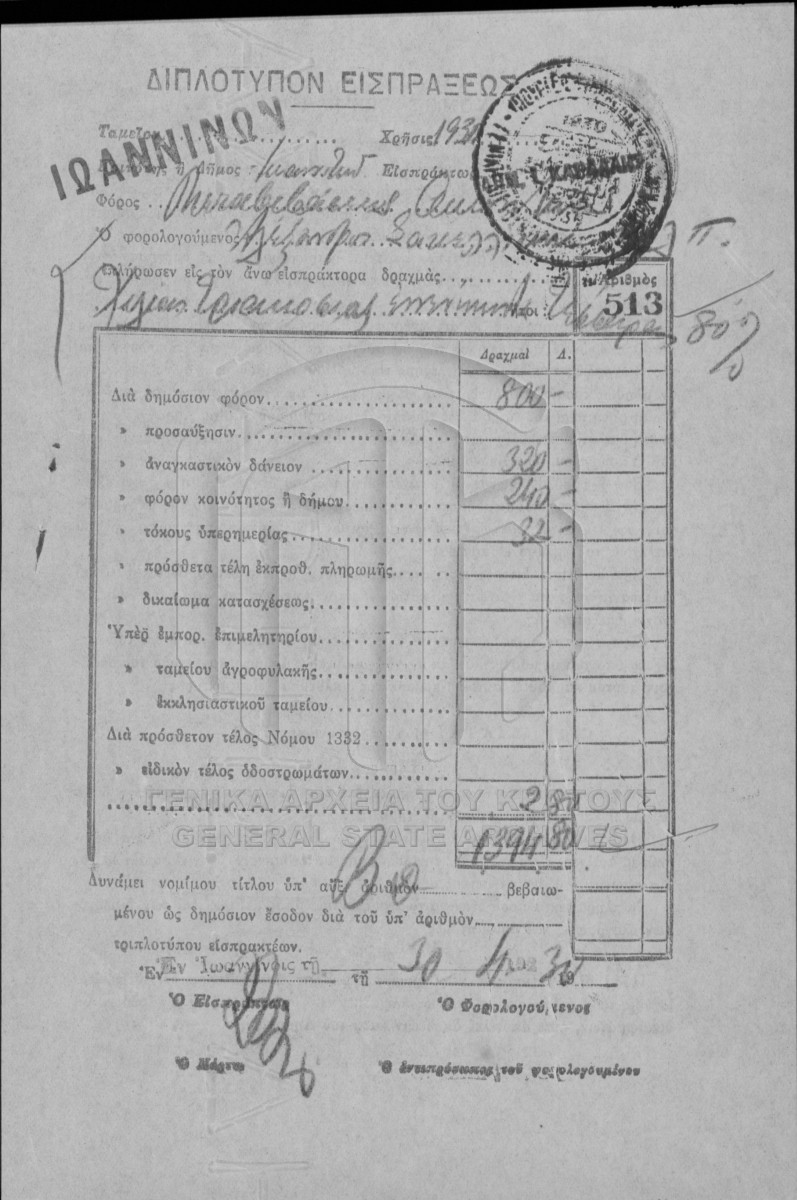 ΔΙΠΛΟΤΥΠΟΝ ΕΙΣΠΡΑΞΕΩΣ
ΙΩΑΝΝΙΝΩΝ
Ταμεῖον Χρῆσις 193
ἢ Δῆμος Εἰσπράκτωρ
Φόρος Μεταβιβάσεως
Ὁ φορολογούμενος
ἐπλήρωσεν εἰς τὸν ἄνω εἰσπράκτορα δραχμὰς
Ἀριθμὸς
513
Χιλίας Τριακοσίας 80%
Δραχμαὶ Λ.
Διὰ δημόσιον φόρον 800 -
» προσαύξησιν
» ἀναγκαστικὸν δάνειον 320 -
» φόρον κοινότητος ἢ δήμου 240 -
» τόκους ὑπερημερίας 32 -
» πρόσθετα τέλη ἐκπροθ. πληρωμῆς
» δικαίωμα κατασχέσεως
Ὑπὲρ ἐμπορ. ἐπιμελητηρίου
» ταμείου ἀγροφυλακῆς
» ἐκκλησιαστικοῦ ταμείου
Διὰ πρόσθετον τέλος Νόμου 1332
» εἰδικὸν τέλος ὁδοστρωμάτων
2 80
ΓΕΝΙΚΑ ΑΡΧΕΙΑ ΤΟΥ ΚΡΑΤΟΥΣ
GENERAL STATE ARCHIVES
1394 80
Δυνάμει νομίμου τίτλου ὑπ' αὔξ. ἀριθμὸν βεβαιω-
μένου ὡς δημόσιον ἔσοδον διὰ τοῦ ὑπ' ἀριθμὸν
τριπλοτύπου εἰσπρακτέων.
Ἐν Ἰωαννίνοις τῇ
Ἐν τῇ 30 4 19
Ὁ Εἰσπράκτωρ Ὁ Φορολογούμενος
Ὁ Μάρτυς Ὁ ἀντιπρόσωπος τοῦ φορολογουμένου